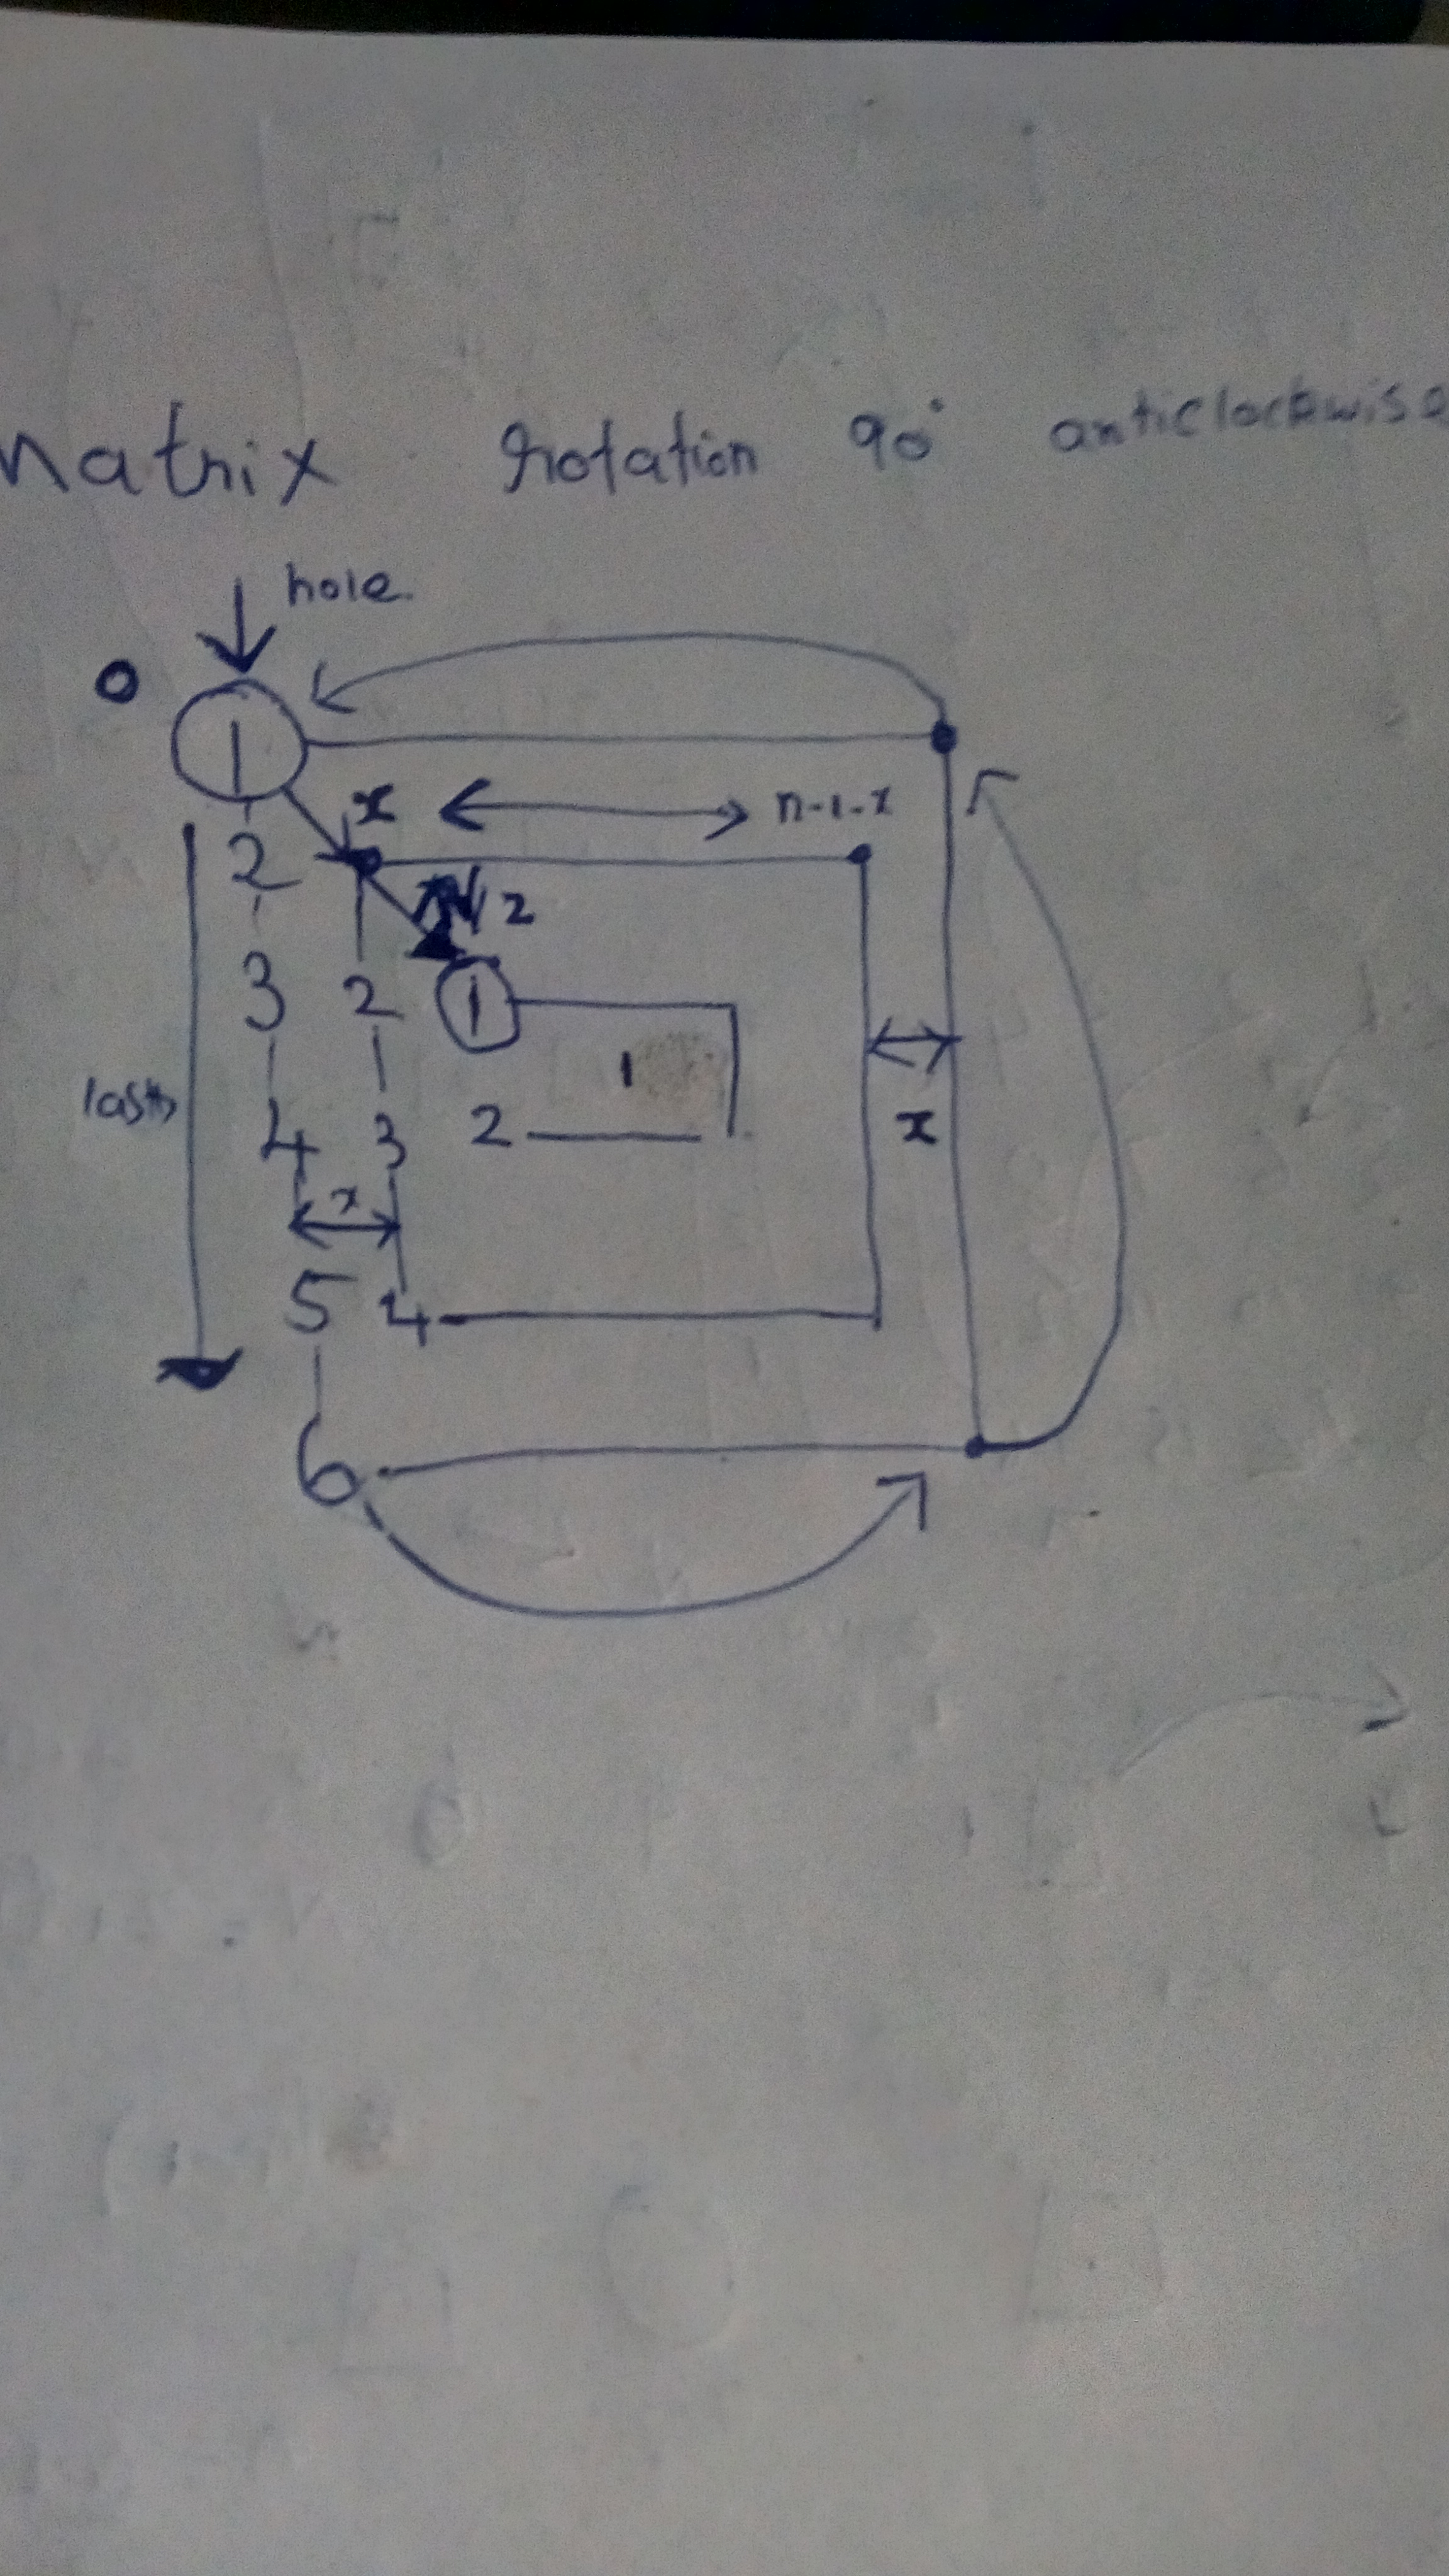 Matrix rotation 90° anticlockwise
hole
0
1
x n-1-x
2
2
3 2 1
1
last
4 3 2
x
x
5 4
6